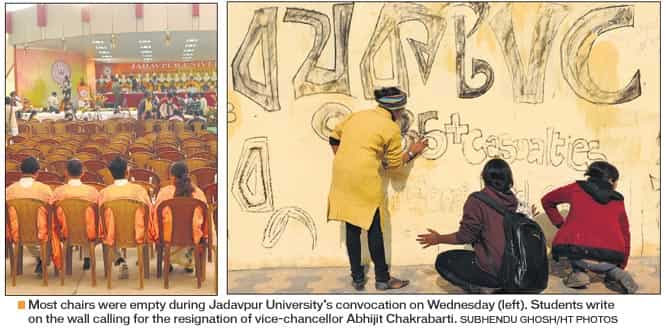 JADAVPUR UNIVE
VC
5+ casualties
Most chairs were empty during Jadavpur University's convocation on Wednesday (left). Students write
on the wall calling for the resignation of vice-chancellor Abhijit Chakrabarti. SUBHENDU GHOSH/HT PHOTOS